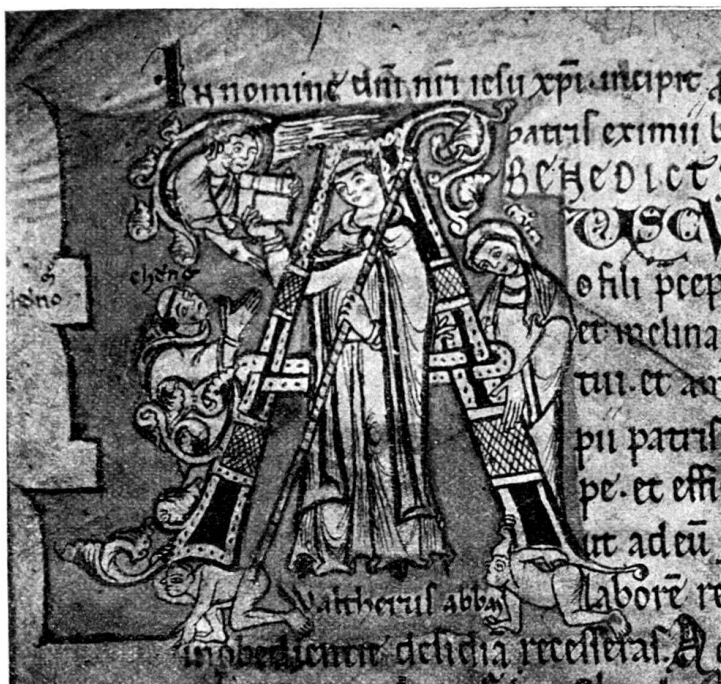 In nomine dni nri iesu xpi. incipit
patris eximii b
BENEDICT
USCU
o fili pcep
et inclina
tui. et au
pii patris
pe. et effi
ut ad eū
Waltherus abbas
laborē re
inobedientie desidiā recesseras. A